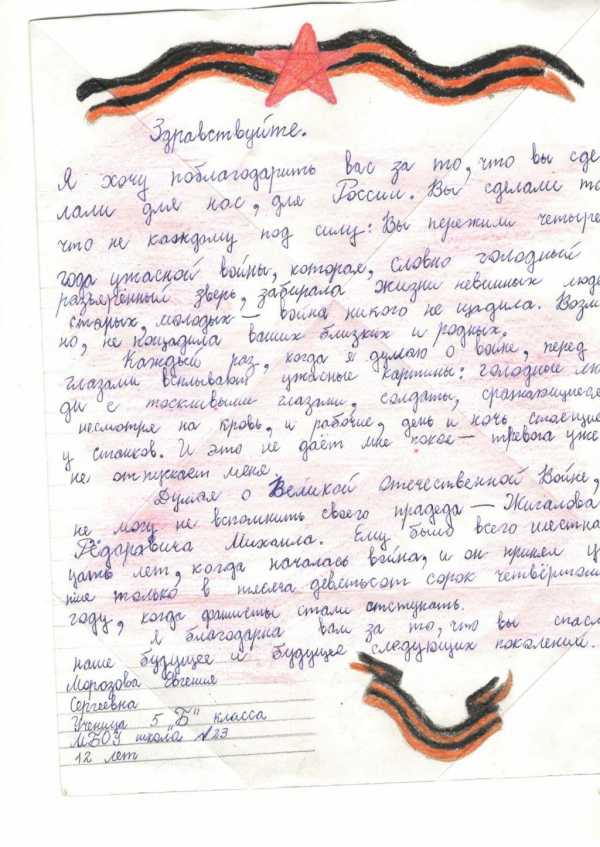 Здравствуйте.
Я хочу поблагодарить вас за то, что вы сде
лали для нас, для России. Вы сделали то
что не каждому под силу: Вы пережили четыре
года ужасной войны, которая, словно голодный
разъярённый зверь, забирала жизни невинных люде
старых, молодых — война никого не щадила. Возм
но, не пощадила ваших близких и родных.
Каждый раз, когда я думаю о войне, перед
глазами всплывают ужасные картины: голодные лю
ди с тоскливыми глазами, солдаты, сражающиеся
несмотря на кровь, и рабочие, день и ночь стоящие
у станков. И это не даёт мне покоя — тревога уже
не отпускает меня.
Думая о Великой Отечественной Войне,
не могу не вспомнить своего прадеда — Жигалова
Фёдоравича Михаила. Ему было всего шестна
цать лет, когда началась война, и он принял у
тие только в тысяча девятьсот сорок четвёртом
году, когда фашисты стали отступать.
Я благодарна вам за то, что вы спасл
наше будущее и будущее следующих поколений.
Морозова Евгения
Сергеевна
Ученица 5 „Б" класса
МБОУ школа №23
12 лет